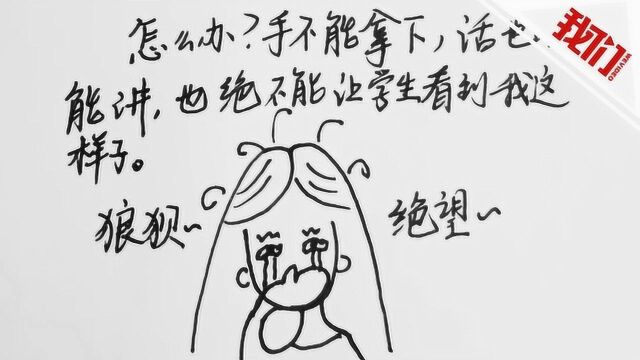 怎么办？手不能拿下，话也
能讲，也绝不能让学生看到我这
样子。
狼狈～
绝望～
我们
WEVIDEO